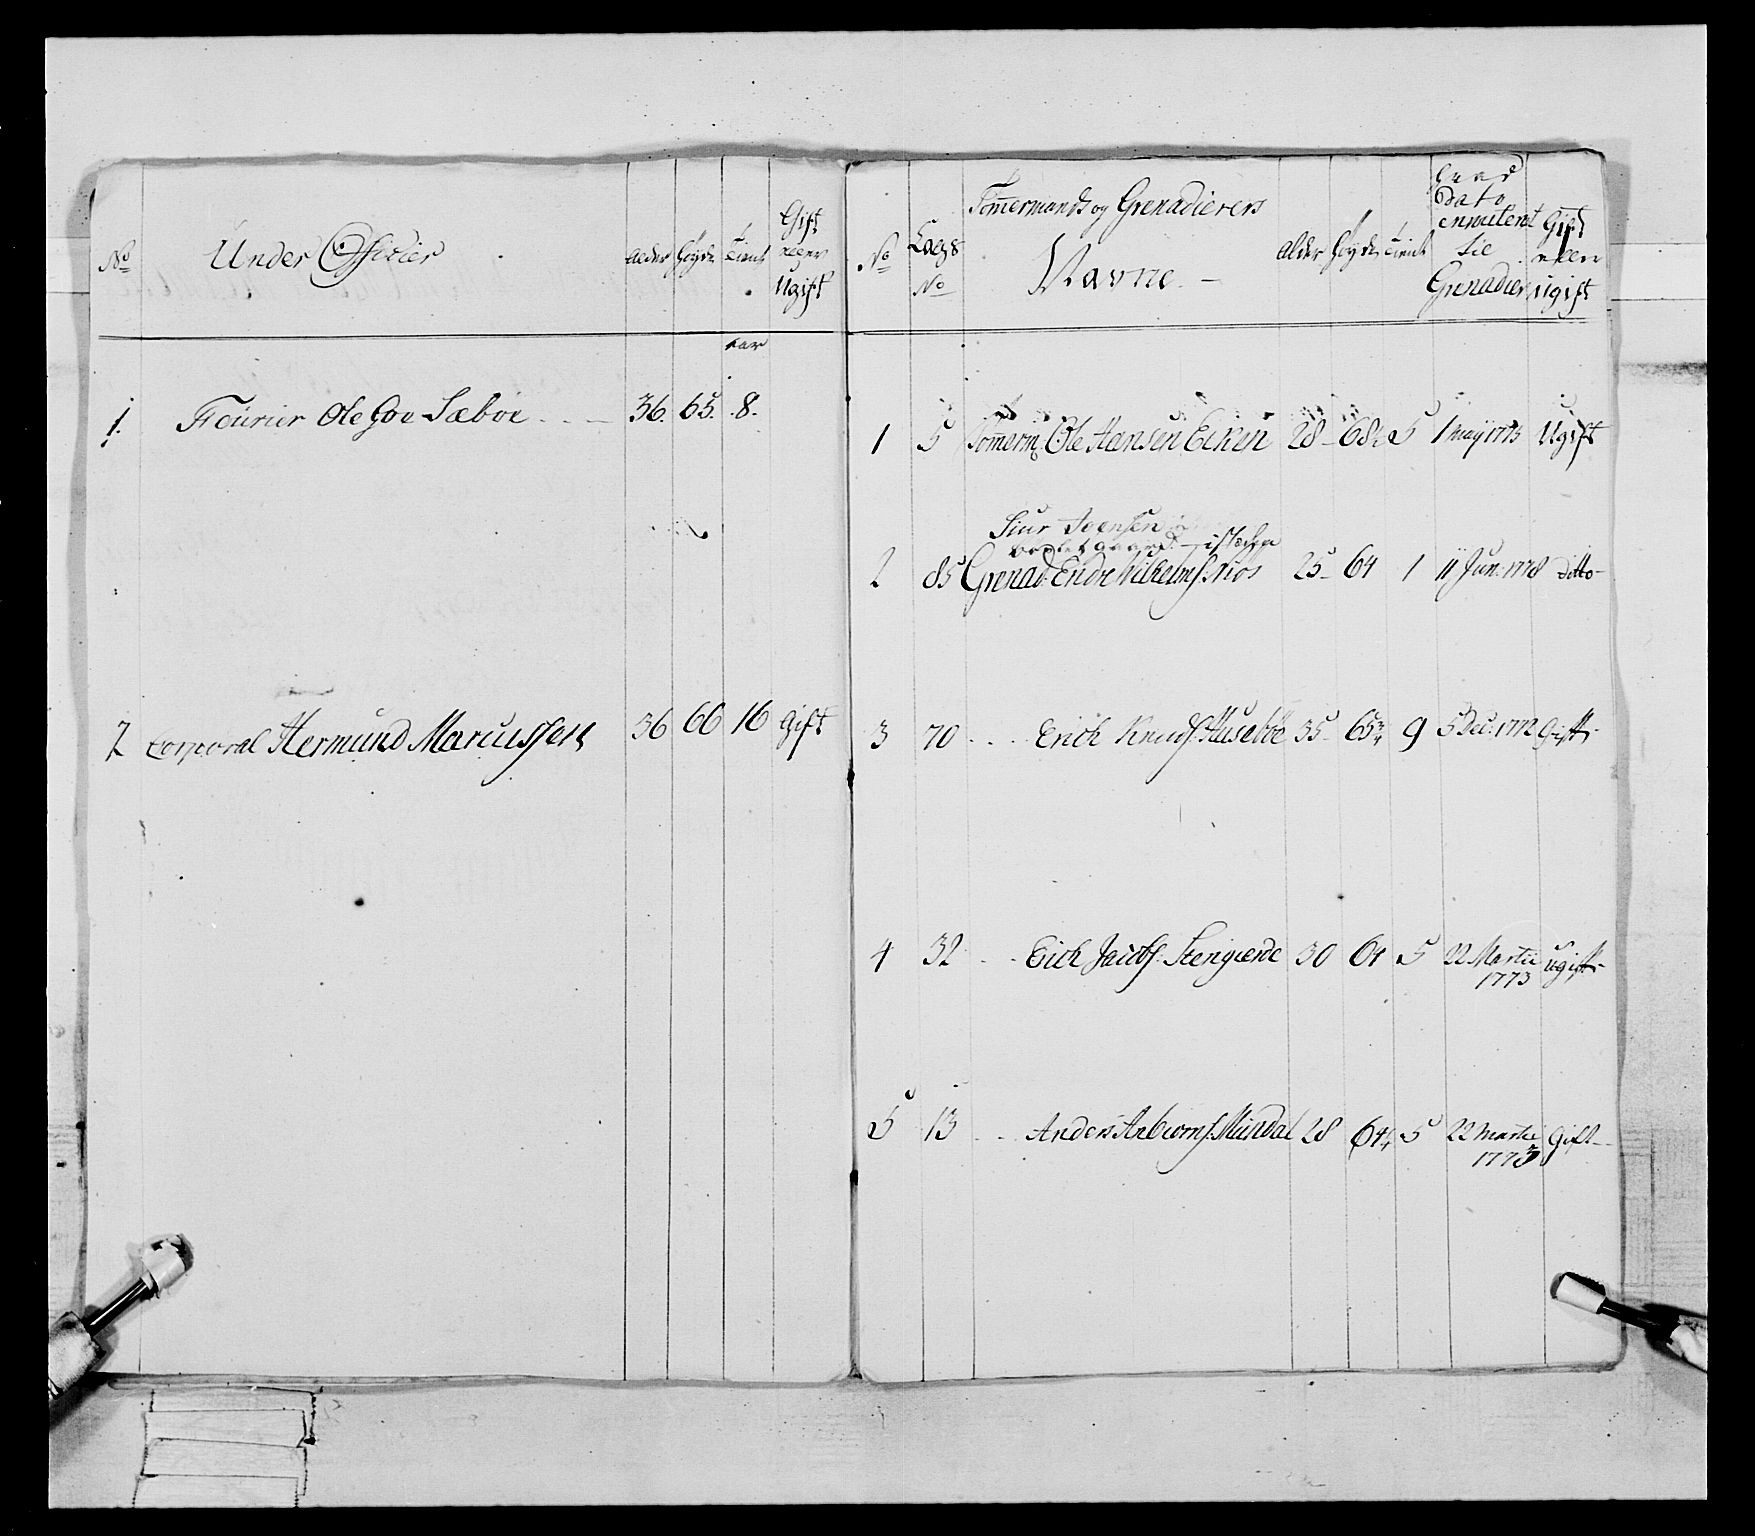 No
Under Officier
alder
høyde
tient
Gift
eller
Ugift
aar
1.
Fourier Ole Goe Sæboe
36.
65.
8.
2
Corporal Hermund Marcussen
36
66
16
Gift
No
Lægs
No
Tømermænds og Grenadierers
Navne
alder
høyde
tient
dato
til
Grenadier
Gift
eller
Ugift
1
5
Tømerm: Ole Hansen Eiken
28
68½
5
1 May 1773
Ugift
Siur Joensen
2
85
Grenad: Endre Vilhelms: Nios
25
64
1
11 Jun: 1778
ditto
3
70
Erich Knuds: Husebøe
35
65¾
9
5 Dec: 1772
Gift
4
32
Erich Jacobs: Stengierde
30
64
5
22 Martii
1773
Ugift
5
13
Anders Anbiørns: Mundal
28
64¼
5
22 Martii
1773
Gift